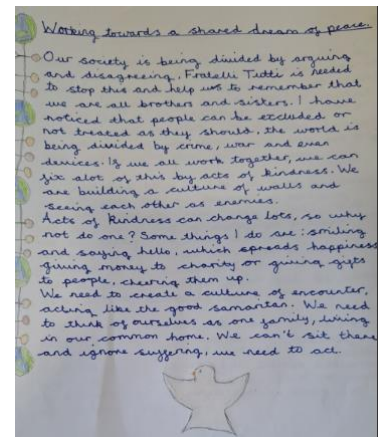 Working towards a shared dream of peace.
Our society is being divided by arguing
and disagreeing, Fratelli Tutti is needed
to stop this and help us to remember that
we are all brothers and sisters. I have
noticed that people can be excluded or
not treated as they should, the world is
being divided by crime, war and even
devices. If we all work together, we can
fix alot of this by acts of kindness. We
are building a culture of walls and
seeing each other as enemies.
Acts of kindness can change lots, so why
not do one? Some things I do are: smiling
and saying hello, which spreads happiness
giving money to charity or giving gifts
to people, cheering them up.
We need to create a culture of encounter,
acting like the good samaritan. We need
to think of ourselves as one family, living
in our common home. We can't sit there
and ignore suffering, we need to act.